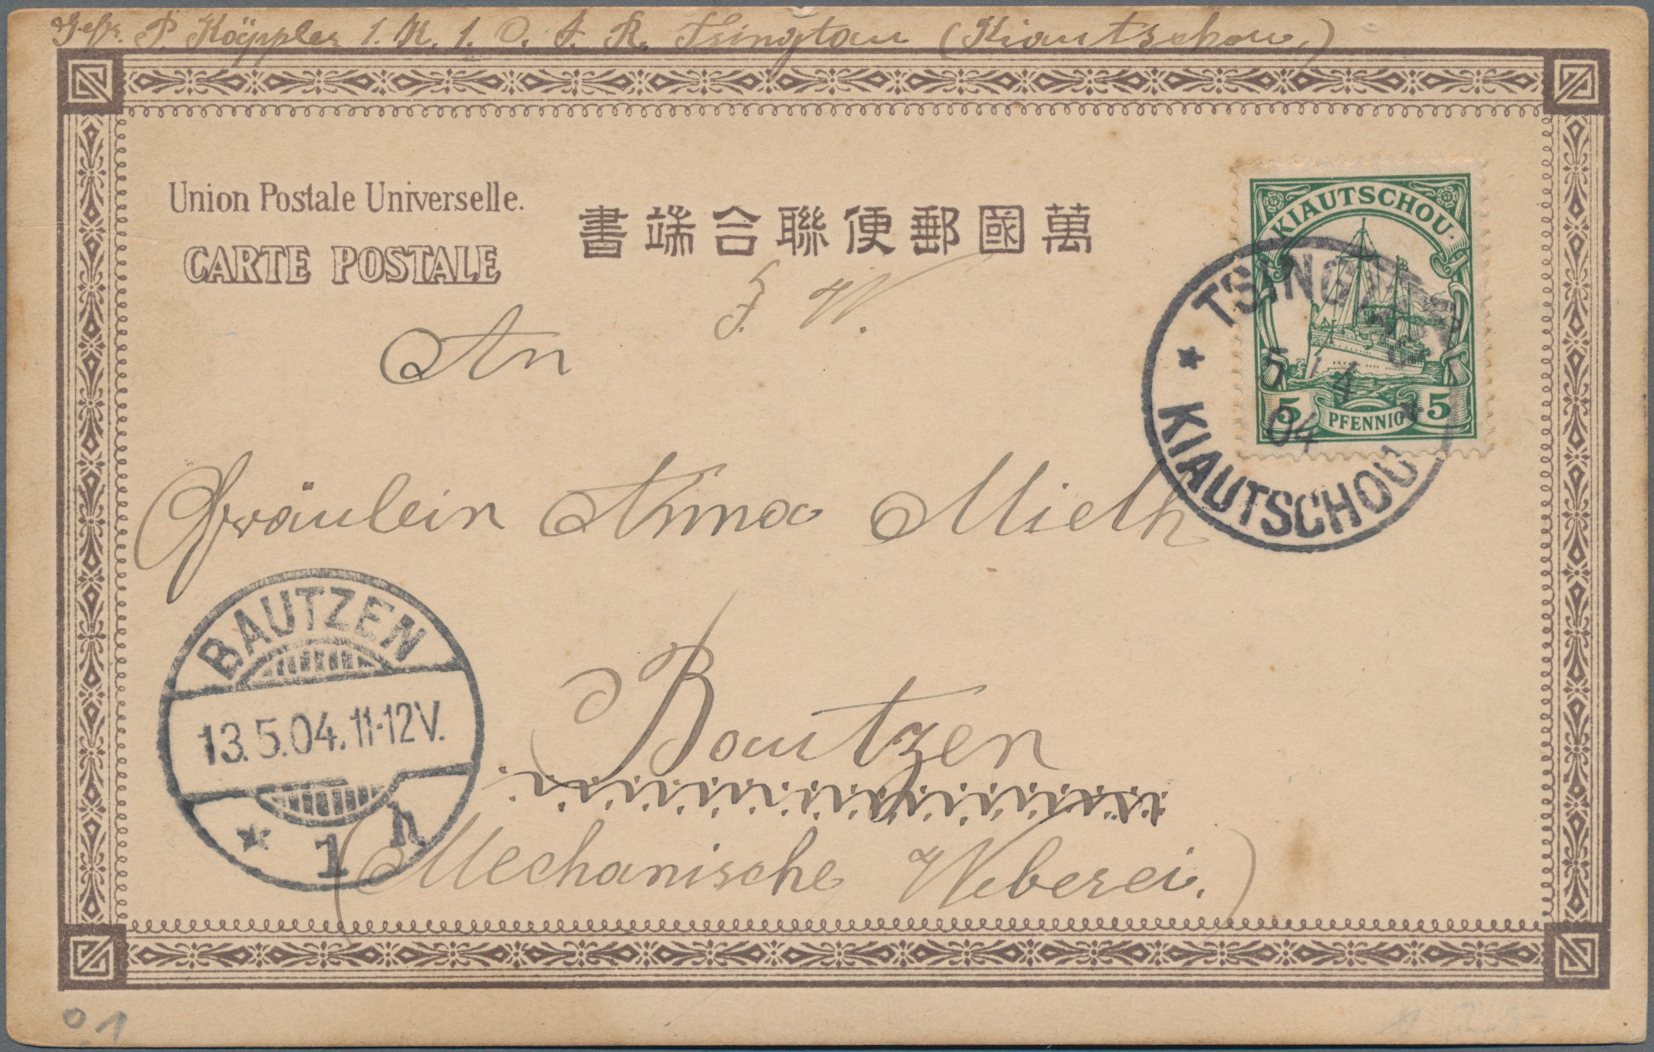 Gefr. P. Köppler 1. K. 1. O. I. R. Tsingtau (Kiautschou,)
Union Postale Universelle.
CARTE POSTALE
書端合聯便郵國萬
KIAUTSCHOU
5 PFENNIG 5
TSINGTAU
5 4
04
KIAUTSCHOU
An
Fräulein Anna Mieth
BAUTZEN
13.5.04.11-12V.
1 h
Bautzen
(Mechanische Weberei.)